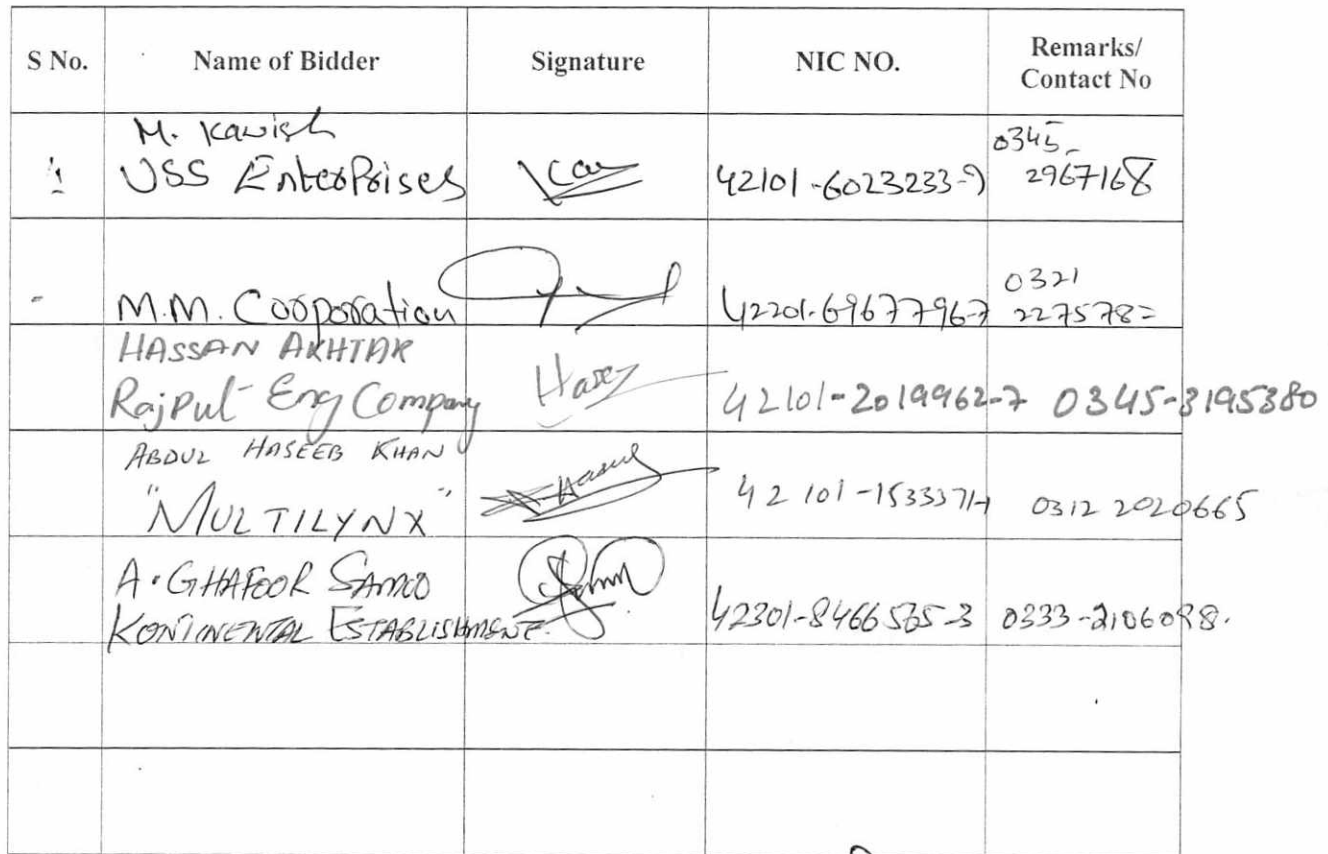 S No. Name of Bidder Signature NIC NO. Remarks/
Contact No
M. Kawish
1 USS Enterprises Kav 42101-6023233-9 0345-
2967168
- M.M. Corporation 42201-6967796-7 0321
HASSAN AKHTAR
Rajput Eng Company 42101-2019962-7 0345-3195380
ABDUL HASEEB KHAN
"MULTILYNX" A-Haseeb 42101-1533371-1 0312 2020665
A. GHAFOOR
KONTINENTAL ESTABLISHMENT. 42301-8466565-3 0333-2106098.